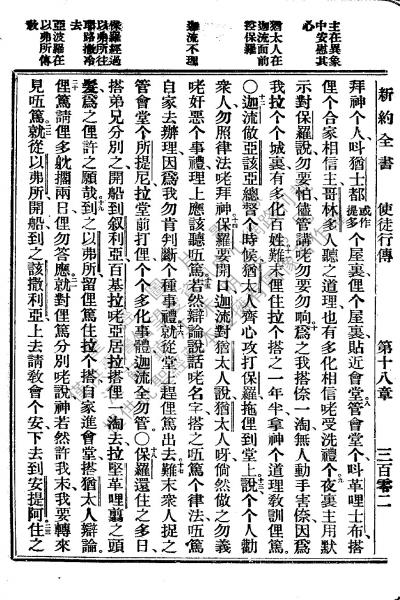 新約全書　使徒行傳　第十八章　三百零二
主在異象
中安慰其
心
猶太人在
迦流面前
控保羅
迦流不理
保羅經過
以弗所往
耶路撒冷
亞波羅在
以弗所傳
教
拜神个人呌猶士都或作提多个屋裏俚个屋裏貼近會堂管會堂个呌革哩士布搭
俚个合家相信主哥林多人聽之道理也有多化相信咾受洗禮个夜裏主用默
示對保羅說勿要怕儘管講咾勿要勿响爲之我搭倷一淘無人動手害倷因爲
我拉个个城裏有多化百姓難末俚住拉个搭之一年半拿神个道理敎訓俚篤
○迦流做亞該亞總督个時候猶太人齊心攻打保羅拖俚到堂上說个个人勸
衆人勿照律法咾拜神保羅要開口迦流對猶太人說猶太人呀倘然做之勿義
咾奸惡个事禮理上應該聽㕶篤若然辯論說話咾名字搭之㕶篤个律法㕶篤
自家去辦理因爲我勿肯判斷个種事禮就從堂上趕俚篤出去難末衆人捉之
管會堂个所提尼拉堂前打俚个个多化事體迦流全勿管○保羅還住之多日
搭弟兄分別之開船到叙利亞百基拉咾亞居拉搭俚一淘去拉堅革哩翦之頭
髮爲之俚許之願哉到之以弗所留俚篤住拉个搭自家進會堂搭猶太人辯論
俚篤請俚多躭擱兩日俚勿答應就對俚篤分別咾說神若然許我末我要轉來
見㕶篤就從以弗所開船到之該撒利亞上去請敎會个安下去到安提阿住之